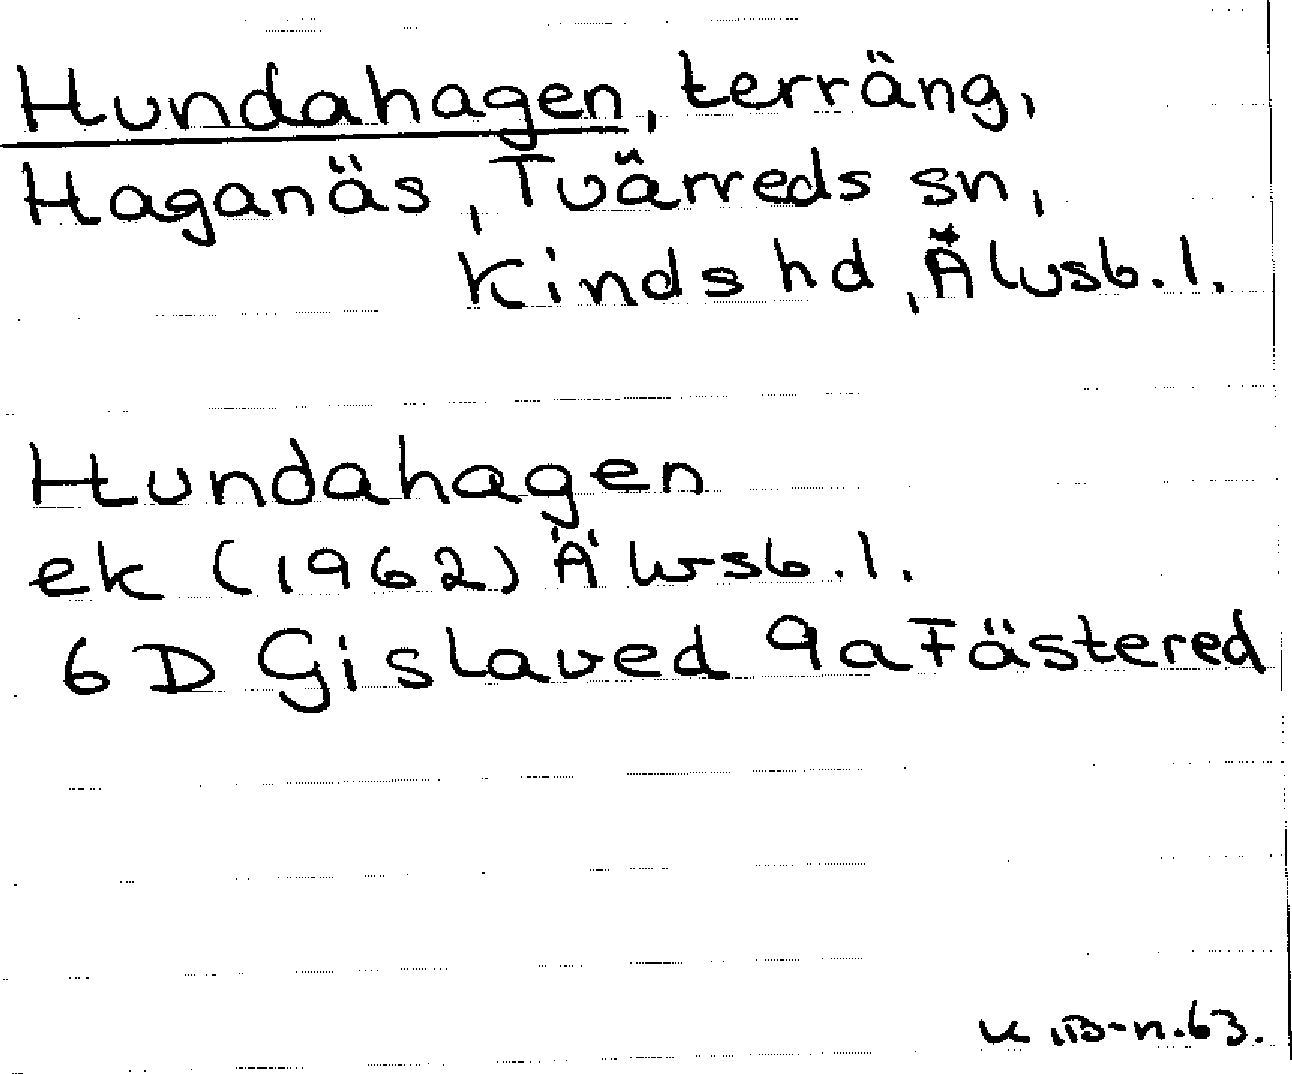 Hundahagen, terräng,
Haganäs, Tvärreds sn,
Kinds hd, Älvsb. l.
Hundahagen
ek (1962) Älvsb. l.
6 D Gislaved 9a Fästered
63.